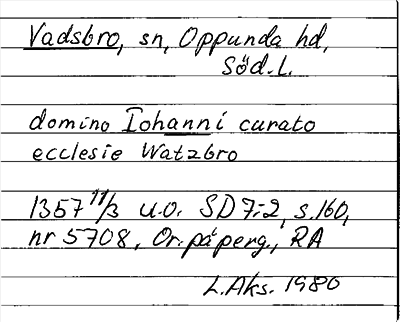 Vadsbro, sn, Oppunda hd,
Söd.L.
domino Iohanni curato
ecclesie Watzbro
1357 11/3 u.o. SD 7:2, s.160,
nr 5708, Or.påperg., RA
L.Aks. 1980